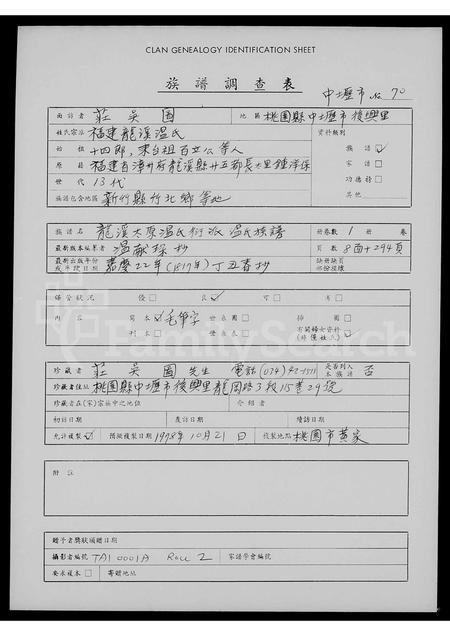 CLAN GENEALOGY IDENTIFICATION SHEET
族譜調查表
中壢市 No 70
面訪者 莊吳圓 地區 桃園縣中壢市復興里
姓氏宗族 福建龍溪温氏 資料類別
始祖 十四郎,來台祖百立公等人 族譜 ✓
原籍 福建省漳州府龍溪縣廿五都長大里鍾 家譜 □
世代 13代 功德榜 □
族譜包含地區 新竹縣竹北鄉等地 其他
譜名 龍溪太原温氏衍派温氏族譜 冊卷數 1 冊 卷
最新版本編纂者 温献琛抄 頁數 8面+294頁
最新出版年份或手寫日期 嘉慶22年(1817年)丁丑春抄 缺冊缺頁部份搜購
保管狀況 優 □ 良 ✓ 可 □ 劣 □
內容 寫本 ✓ 毛筆字 世系圖 □ 神圖 □
刊本 □ 像系表 □ 有關婦女資料(非僅姓氏) □
珍藏者 莊吳圓 先生 電話 (034) 42-1511 是否列入本族譜 否
珍藏者住址 桃園縣中壢市復興里龍岡路3段15巷29號
珍藏者在(宗)宗族中之地位 介紹者
初訪日期 覆訪日期 續訪日期
允許複製 ✓ 預擬複製日期 1978年10月21日 複製地點 桃園市黃家
附註
贈予者獎狀頒贈日期
攝影者編號 TAI 0001A Roll 2 家譜學會編號
要求複本 □ 寄贈地址
FamilySearch